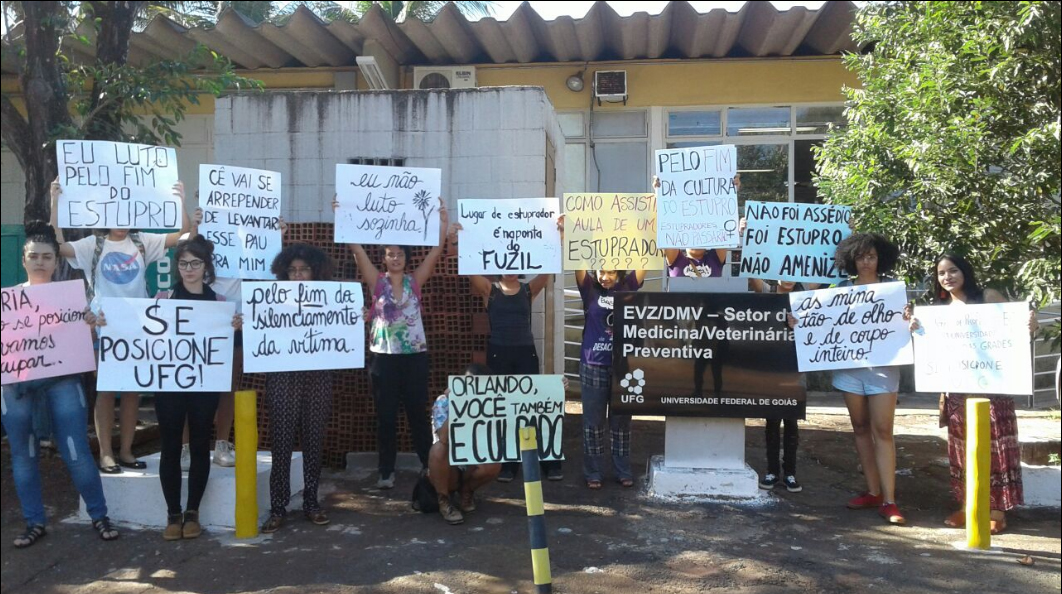 EU LUTO
PELO FIM
DO
ESTUPRO
CÊ VAI SE
ARREPENDER
DE LEVANTAR
ESSE PAU
PRA MIM
eu não
luto
sozinha!
Lugar de estuprador
é na ponta
do
FUZIL
COMO ASSISTI
AULA DE UM
ESTUPRADO
?????
PELO FIM
DA CULTURA
DO ESTUPRO
ESTUPRADORES
NÃO
NÃO FOI ASSÉDIO
FOI ESTUPRO
NÃO AMENIZE
RIA,
o se posicion
vamos
upar.
NASA
SE
POSICIONE
UFG!
pelo fim do
silenciamento
da vítima
ORLANDO,
VOCÊ TAMBÉM
É CULPADO
EVZ/DMV – Setor d
Medicina/Veterinária
Preventiva
UFG
UNIVERSIDADE FEDERAL DE GOIÁS
as mina
tão de olho
e de corpo
inteiro.
UNIVERSIDADE
GRADES